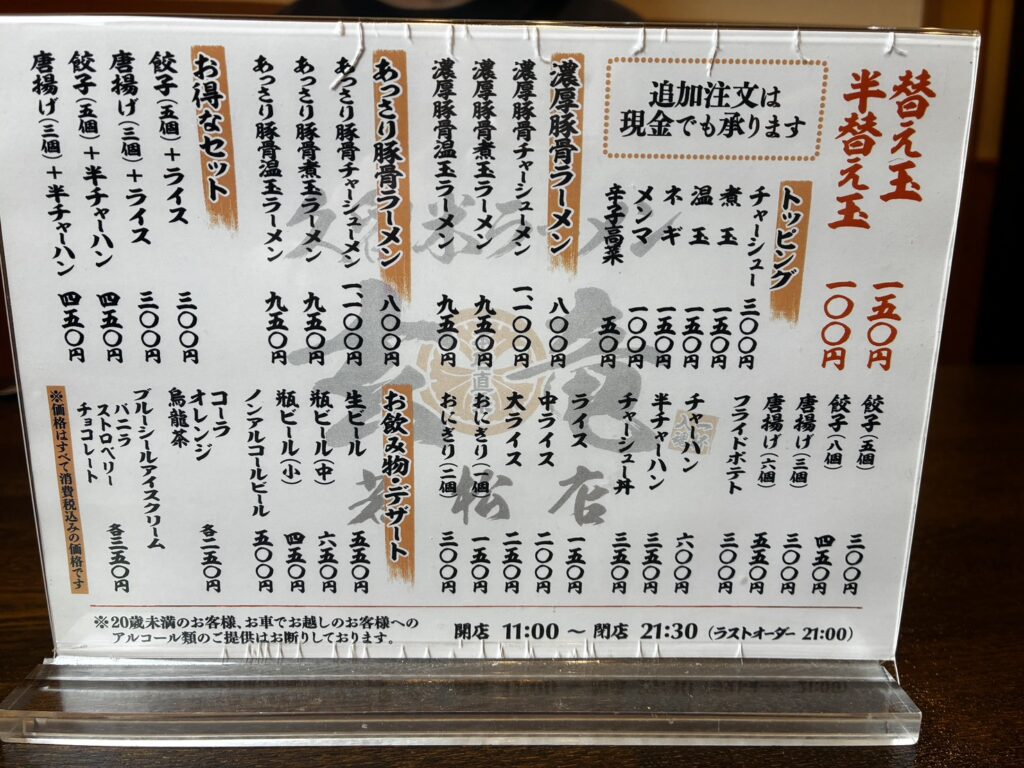 替え玉 一五〇円
半替え玉 一〇〇円
追加注文は
現金でも承ります
トッピング
チャーシュー 三〇〇円
煮玉 一五〇円
温玉 一五〇円
ネギ 一五〇円
メンマ 一〇〇円
辛子高菜 五〇円
濃厚豚骨ラーメン 八〇〇円
濃厚豚骨チャーシューメン 一、一〇〇円
濃厚豚骨煮玉ラーメン 九五〇円
濃厚豚骨温玉ラーメン 九五〇円
あっさり豚骨ラーメン 八〇〇円
あっさり豚骨チャーシューメン 一、一〇〇円
あっさり豚骨煮玉ラーメン 九五〇円
あっさり豚骨温玉ラーメン 九五〇円
お得なセット
餃子(五個)+ライス 三〇〇円
唐揚げ(三個)+ライス 三〇〇円
餃子(五個)+半チャーハン 四五〇円
唐揚げ(三個)+半チャーハン 四五〇円
餃子(五個) 三〇〇円
餃子(八個) 四五〇円
唐揚げ(三個) 三〇〇円
唐揚げ(六個) 五五〇円
フライドポテト 三〇〇円
チャーハン 六〇〇円
半チャーハン 三五〇円
チャーシュー丼 三五〇円
ライス 一五〇円
中ライス 二〇〇円
大ライス 二五〇円
おにぎり(一個) 一五〇円
おにぎり(二個) 三〇〇円
お飲み物・デザート
生ビール 五五〇円
瓶ビール(中) 六五〇円
瓶ビール(小) 四五〇円
ノンアルコールビール 五〇〇円
コーラ
オレンジ
烏龍茶
各二五〇円
ブルーシールアイスクリーム
バニラ
ストロベリー
チョコレート
各三五〇円
※価格はすべて消費税込みの価格です
久留米ラーメン
玄竜
直
若松店
※20歳未満のお客様、お車でお越しのお客様への
アルコール類のご提供はお断りしております。
開店 11:00 ～ 閉店 21:30 (ラストオーダー 21:00)